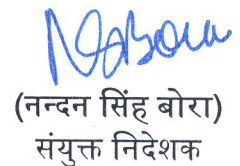 (नन्दन सिंह बोरा)
संयुक्त निदेशक